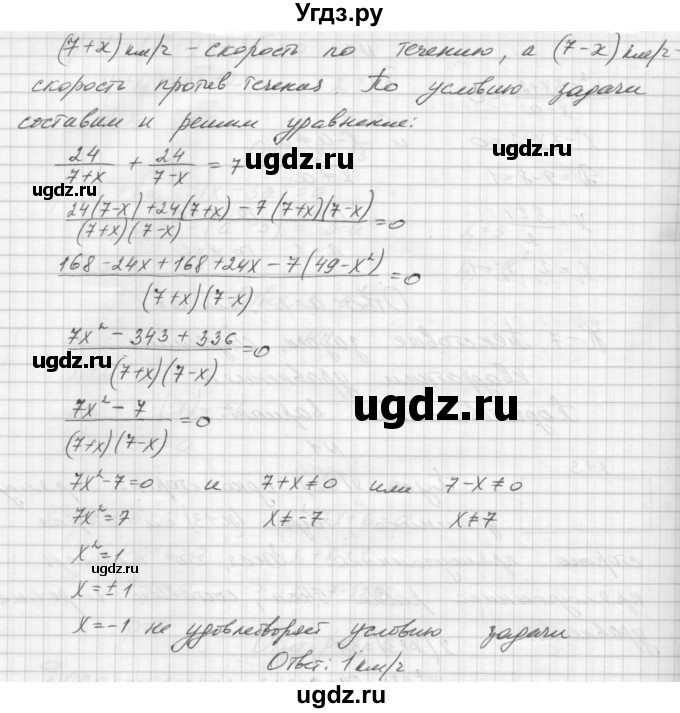 Угдз.ру
(7+x) км/ч - скорость по течению, а (7-x) км/ч -
скорость против течения. По условию задачи
составим и решим уравнение:
24/(7+x) + 24/(7-x) = 7
ugdz.ru
ugdz.ru
ugdz.ru
(24(7-x)+24(7+x)-7(7+x)(7-x))/((7+x)(7-x)) = 0
(168-24x+168+24x-7(49-x²))/((7+x)(7-x)) = 0
(7x²-343+336)/((7+x)(7-x)) = 0
ugdz.ru
(7x²-7)/((7+x)(7-x)) = 0
ugdz.ru
7x²-7=0 и 7+x≠0 или 7-x≠0
7x²=7 x≠-7 x≠7
x²=1
ugdz.ru
ugdz.ru
x=±1
x=-1 не удовлетворяет условию задачи
Ответ: 1 км/ч
ugdz.ru